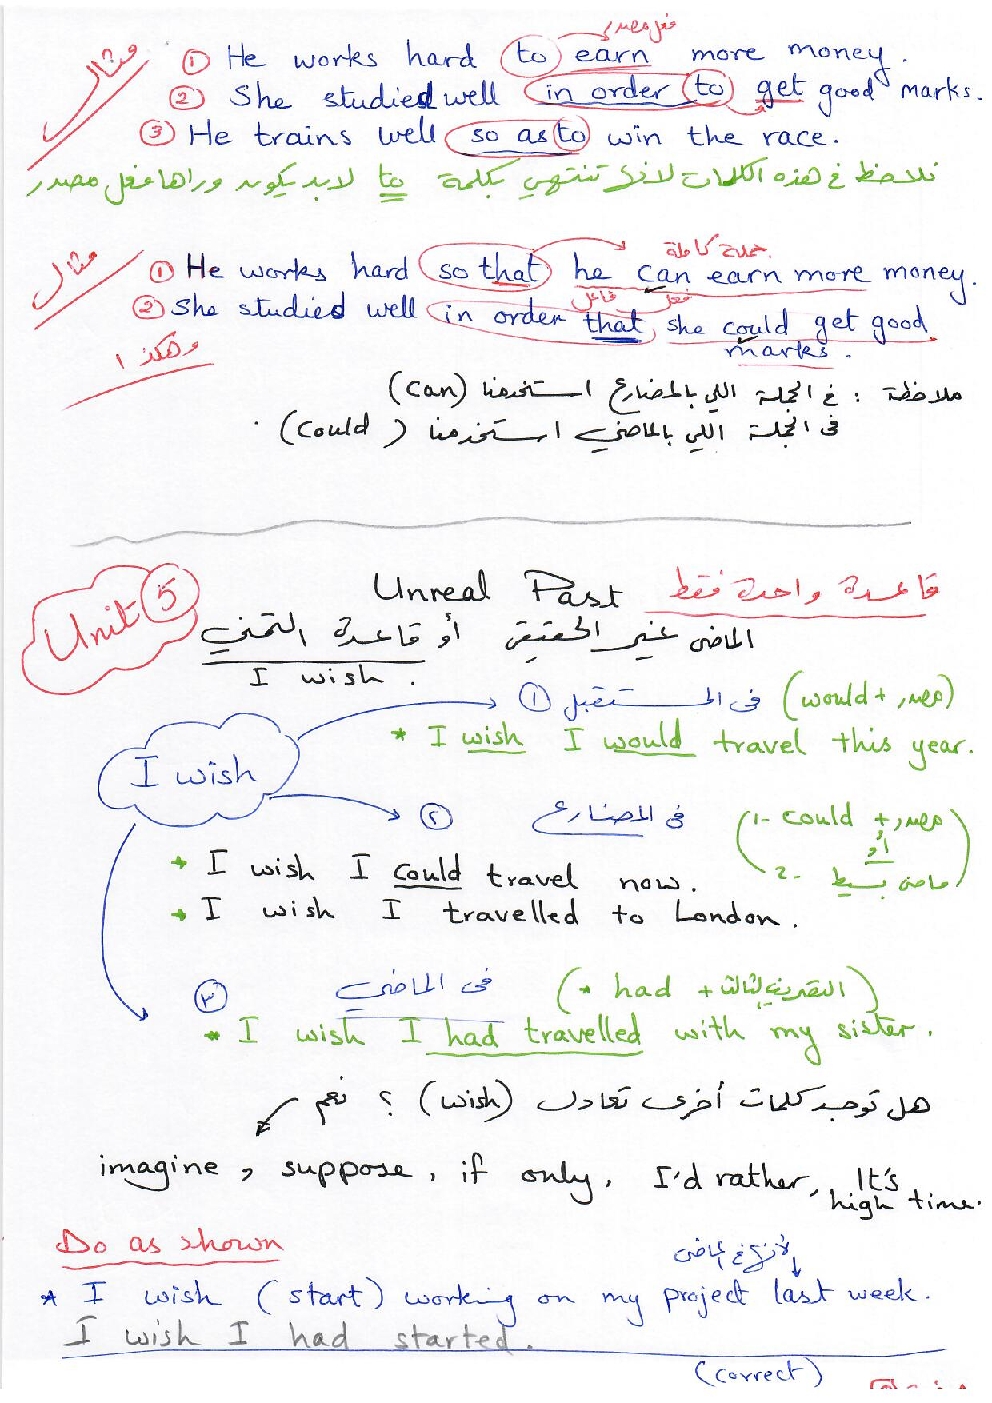 فعل مصدر
مثال
① He works hard to earn more money.
② She studied well in order to get good marks.
③ He trains well so as to win the race.
نلاحظ في هذه الكلمات لازم تنتهي بكلمة to لابد يكون وراها فعل مصدر
جملة كاملة
مثال
① He works hard so that he can earn more money.
فاعل فعل
② She studied well in order that she could get good
marks.
وهكذا
ملاحظة : في الجملة اللي بالمضارع استخدمنا (can)
في الجملة اللي بالماضي استخدمنا (could) .
Unit 5
Unreal Past قاعدة واحدة فقط
الماضى غير الحقيقى أو قاعدة التمني
I wish.
I wish
① فى المستقبل (would + مصدر)
* I wish I would travel this year.
② فى المضارع (1- could + مصدر
أو
2- ماضى بسيط)
* I wish I could travel now.
* I wish I travelled to London.
③ فى الماضي (* had + التصريف الثالث)
* I wish I had travelled with my sister.
هل توجد كلمات أخرى تعادل (wish) ؟ نعم
imagine, suppose, if only, I'd rather, It's
high time.
Do as shown
في الماضى
* I wish (start) working on my project last week.
I wish I had started.
(correct)